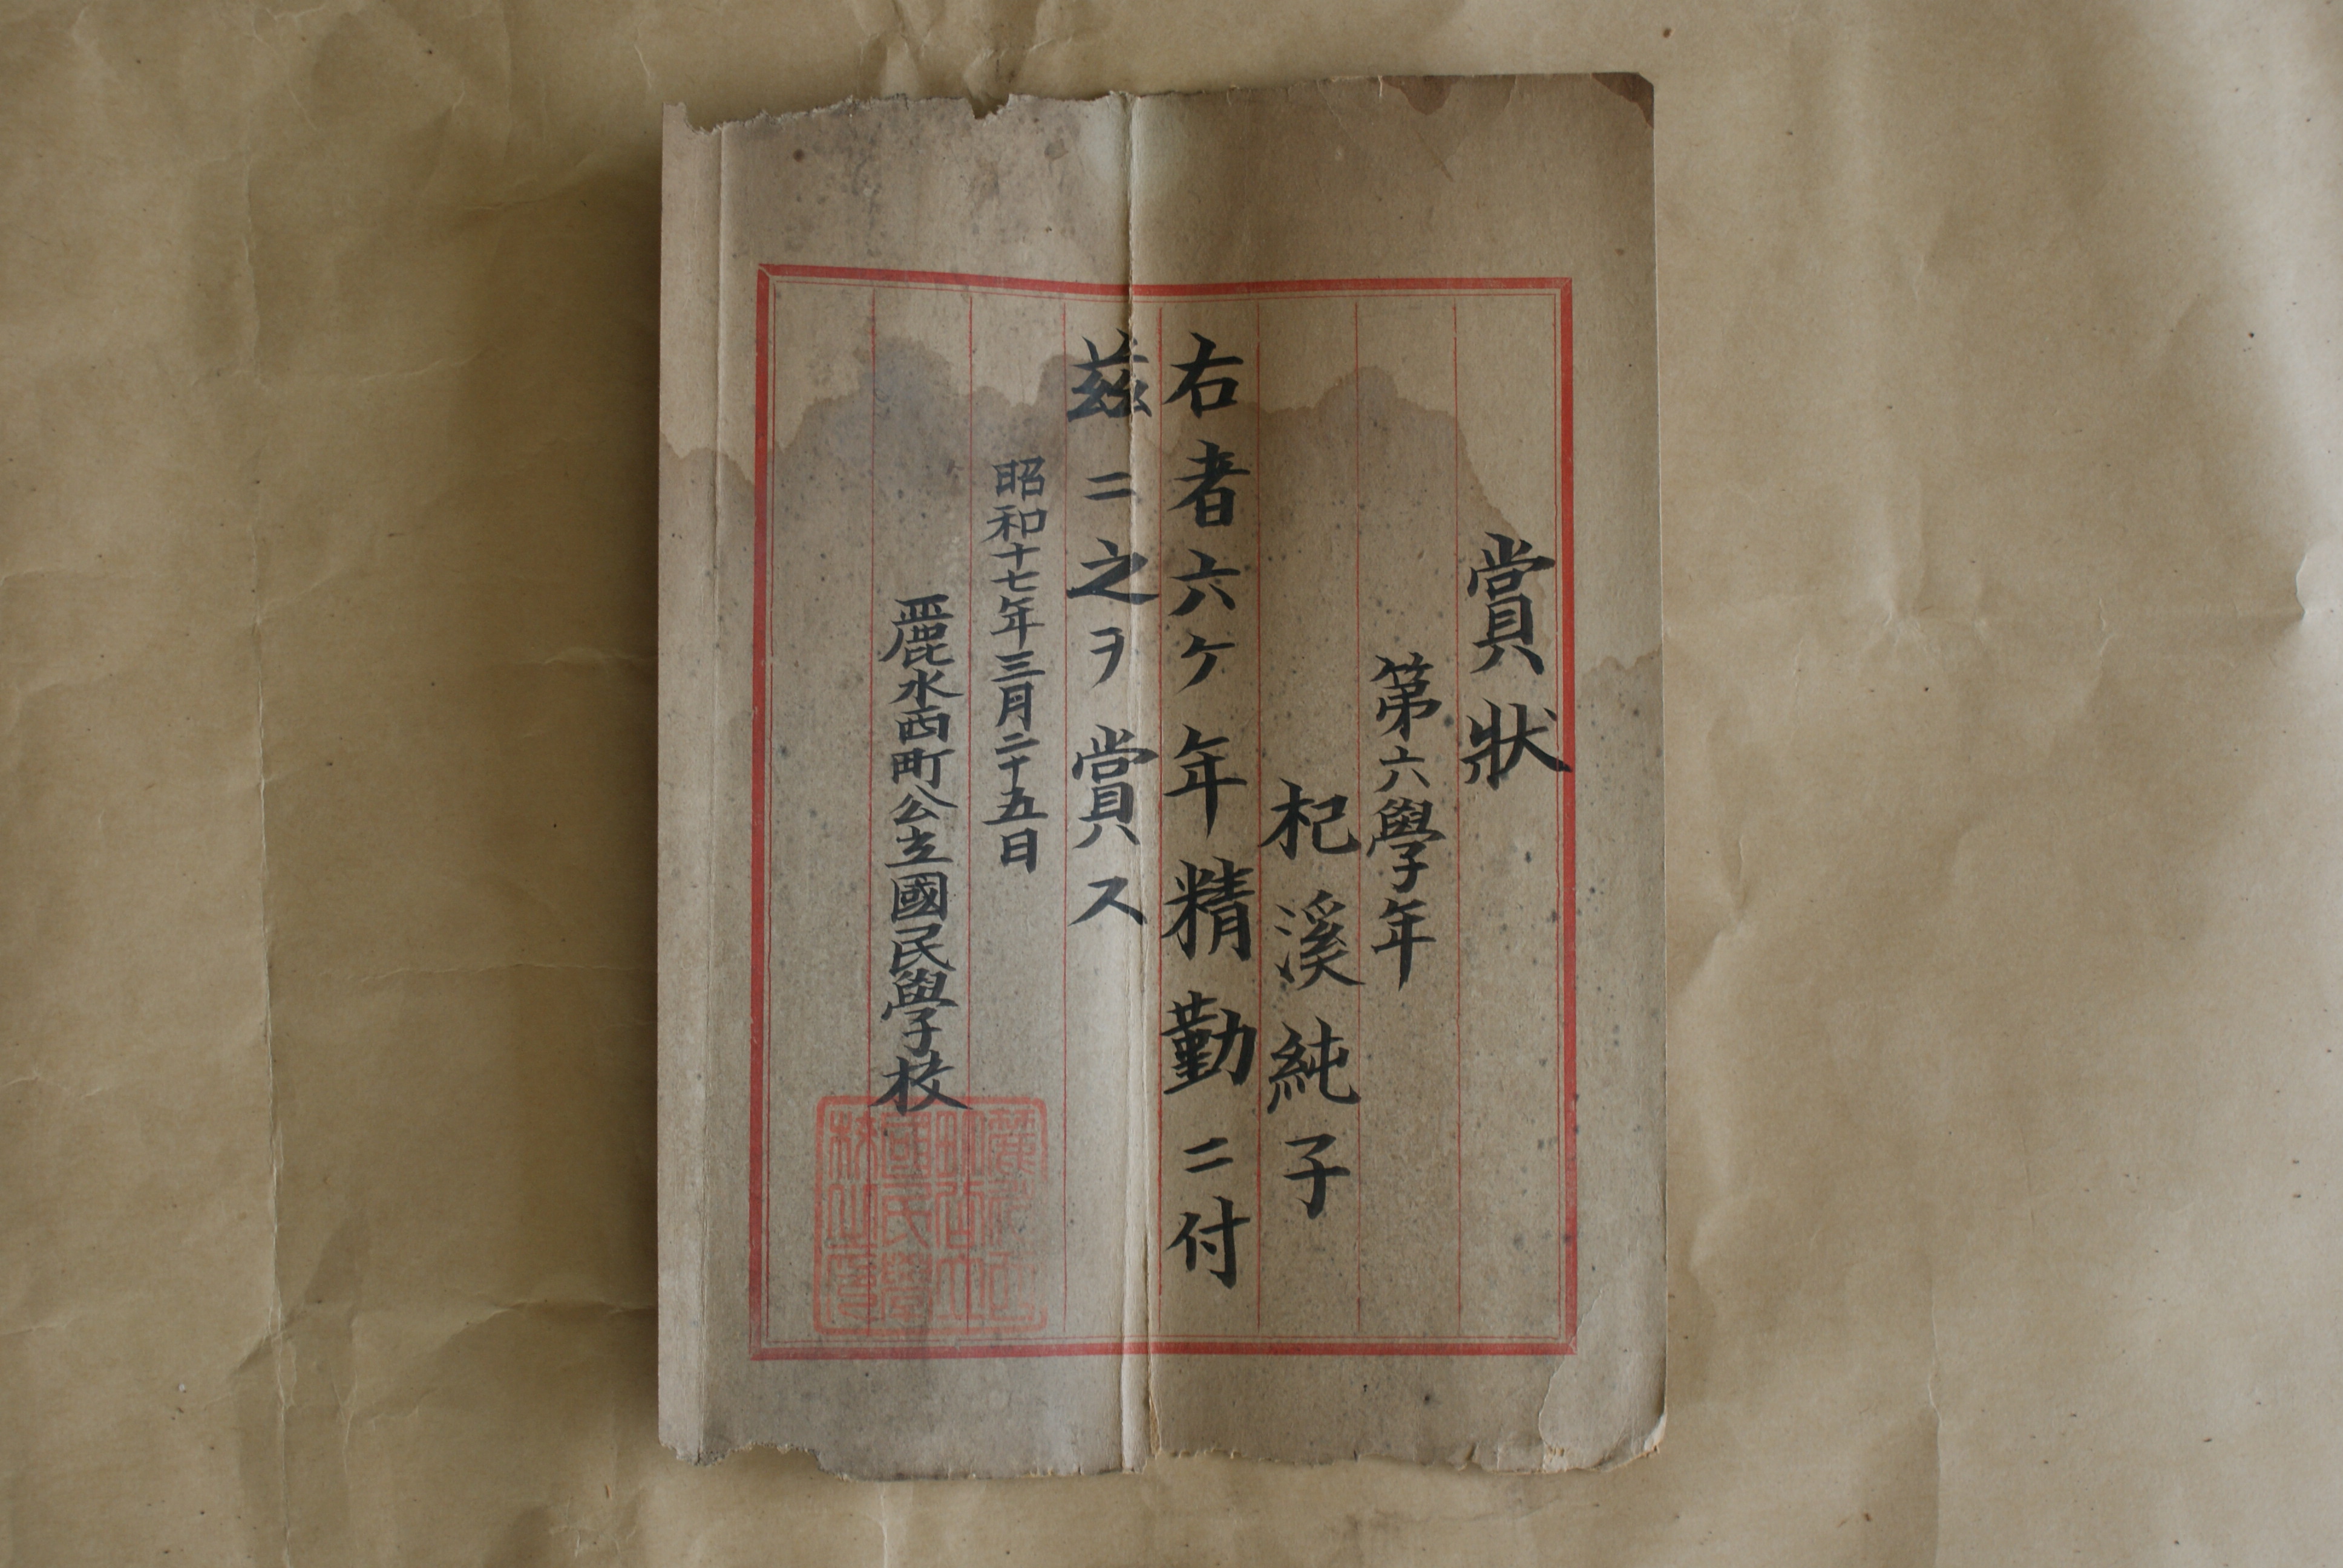 賞狀
第六學年
杞溪純子
右者六ケ年精勤ニ付
茲ニ之ヲ賞ス
昭和十七年三月二十五日
麗水西町公立國民學校
麗水西
町公立
國民學
校之印